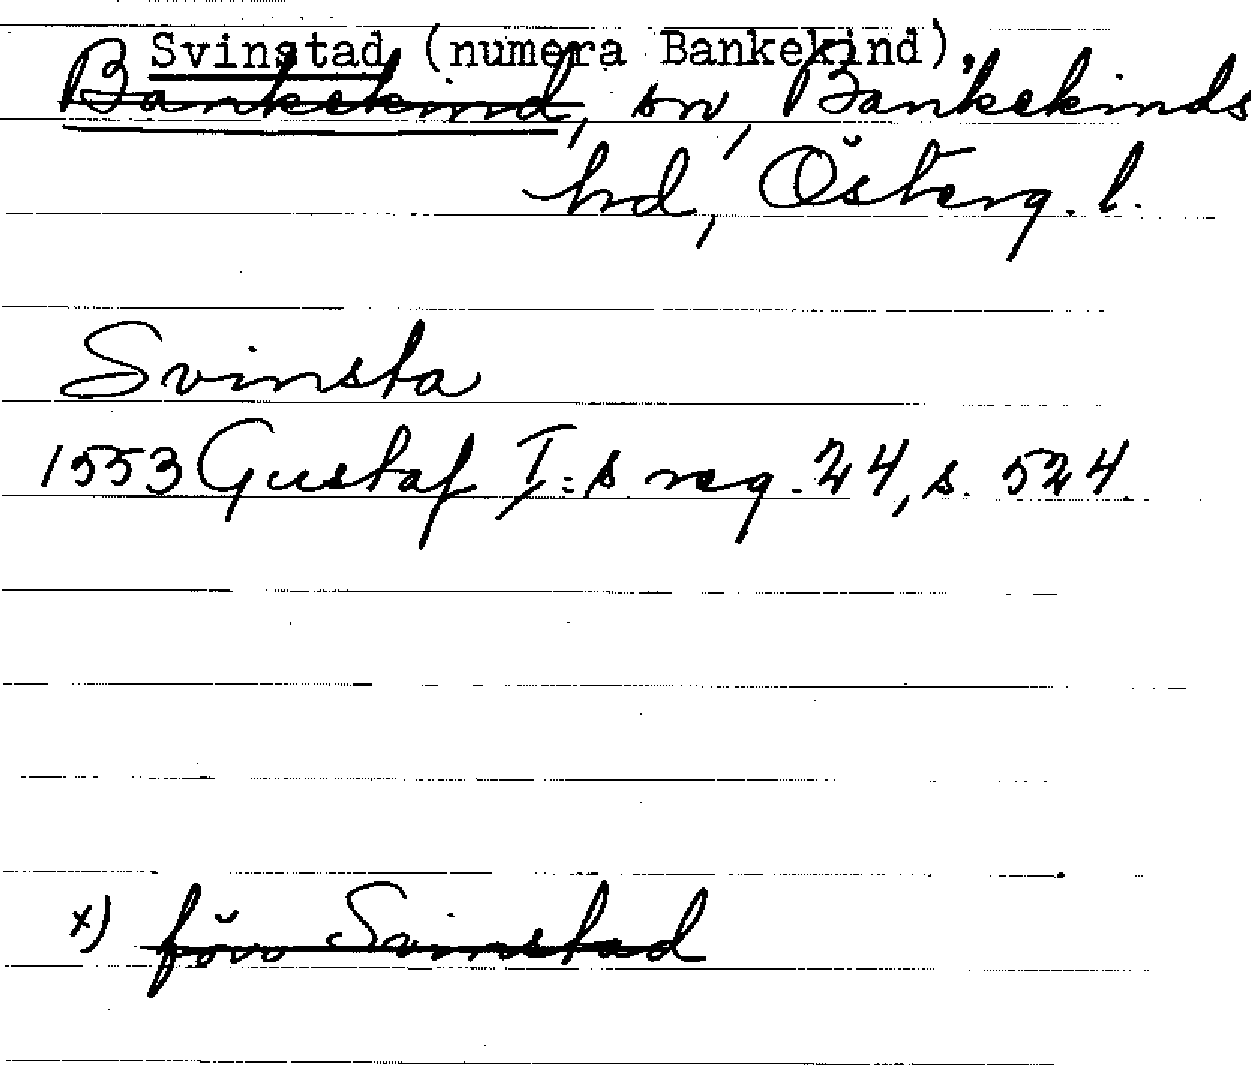 Svinstad (numera Bankekind),
Bankekind, sn, Bankekinds
hd, Österg. l.
Svinsta
1553 Gustaf I:s reg. 24, s. 524.
x) förr Svinstad